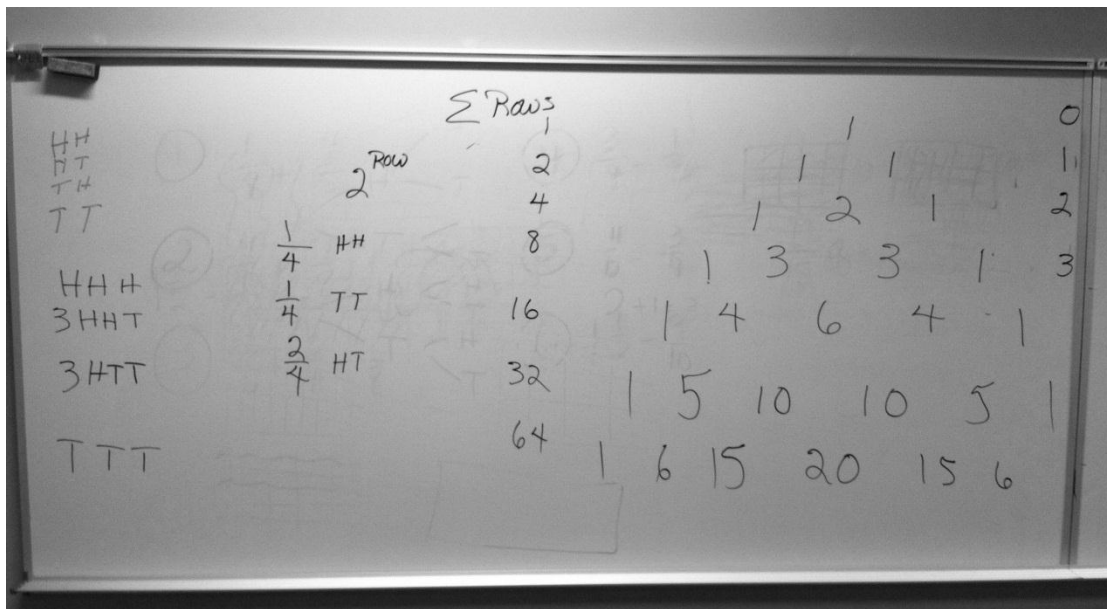 HH
HT
TH
TT
HHH
3HHT
3HTT
TTT
2^Row
1/4 HH
1/4 TT
2/4 HT
Σ Rows
1
2
4
8
16
32
64
1 0
1 1 1
1 2 1 2
1 3 3 1 3
1 4 6 4 1
1 5 10 10 5 1
1 6 15 20 15 6